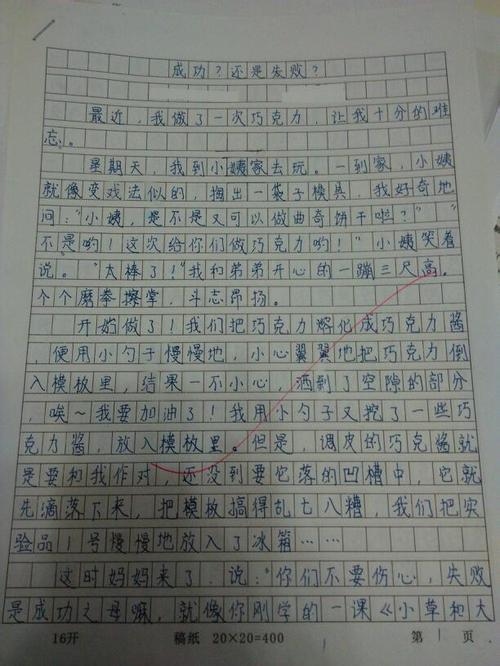 成功？还是失败？
最近，我做了一次巧克力，让我十分的难
忘。
星期天，我到小姨家去玩。一到家，小姨
就像变戏法似的，掏出一袋子模具，我好奇地
问：“小姨，是不是又可以做曲奇饼干啦？”“
不是哟！这次给你们做巧克力哟！”小姨笑着
说。“太棒了！”我和弟弟开心的一蹦三尺高。
个个磨拳擦掌，斗志昂扬。
开始做了！我们把巧克力熔化成巧克力酱
，便用小勺子慢慢地，小心翼翼地把巧克力倒
入模板里，结果一不小心，洒到了空隙的部分
，唉~我要加油了！我用小勺子又挖了一些巧
克力酱，放入模板里。但是，调皮的巧克酱就
是要和我作对，还没到要它落的凹槽中，它就
先滴落下来，把模板搞得乱七八糟，我们把实
验品1号慢慢地放入了冰箱……
这时妈妈来了，说：“你们不要伤心，失败
是成功之母嘛，就像你刚学的一课《小草和大
16开 稿纸 20×20=400 第1页